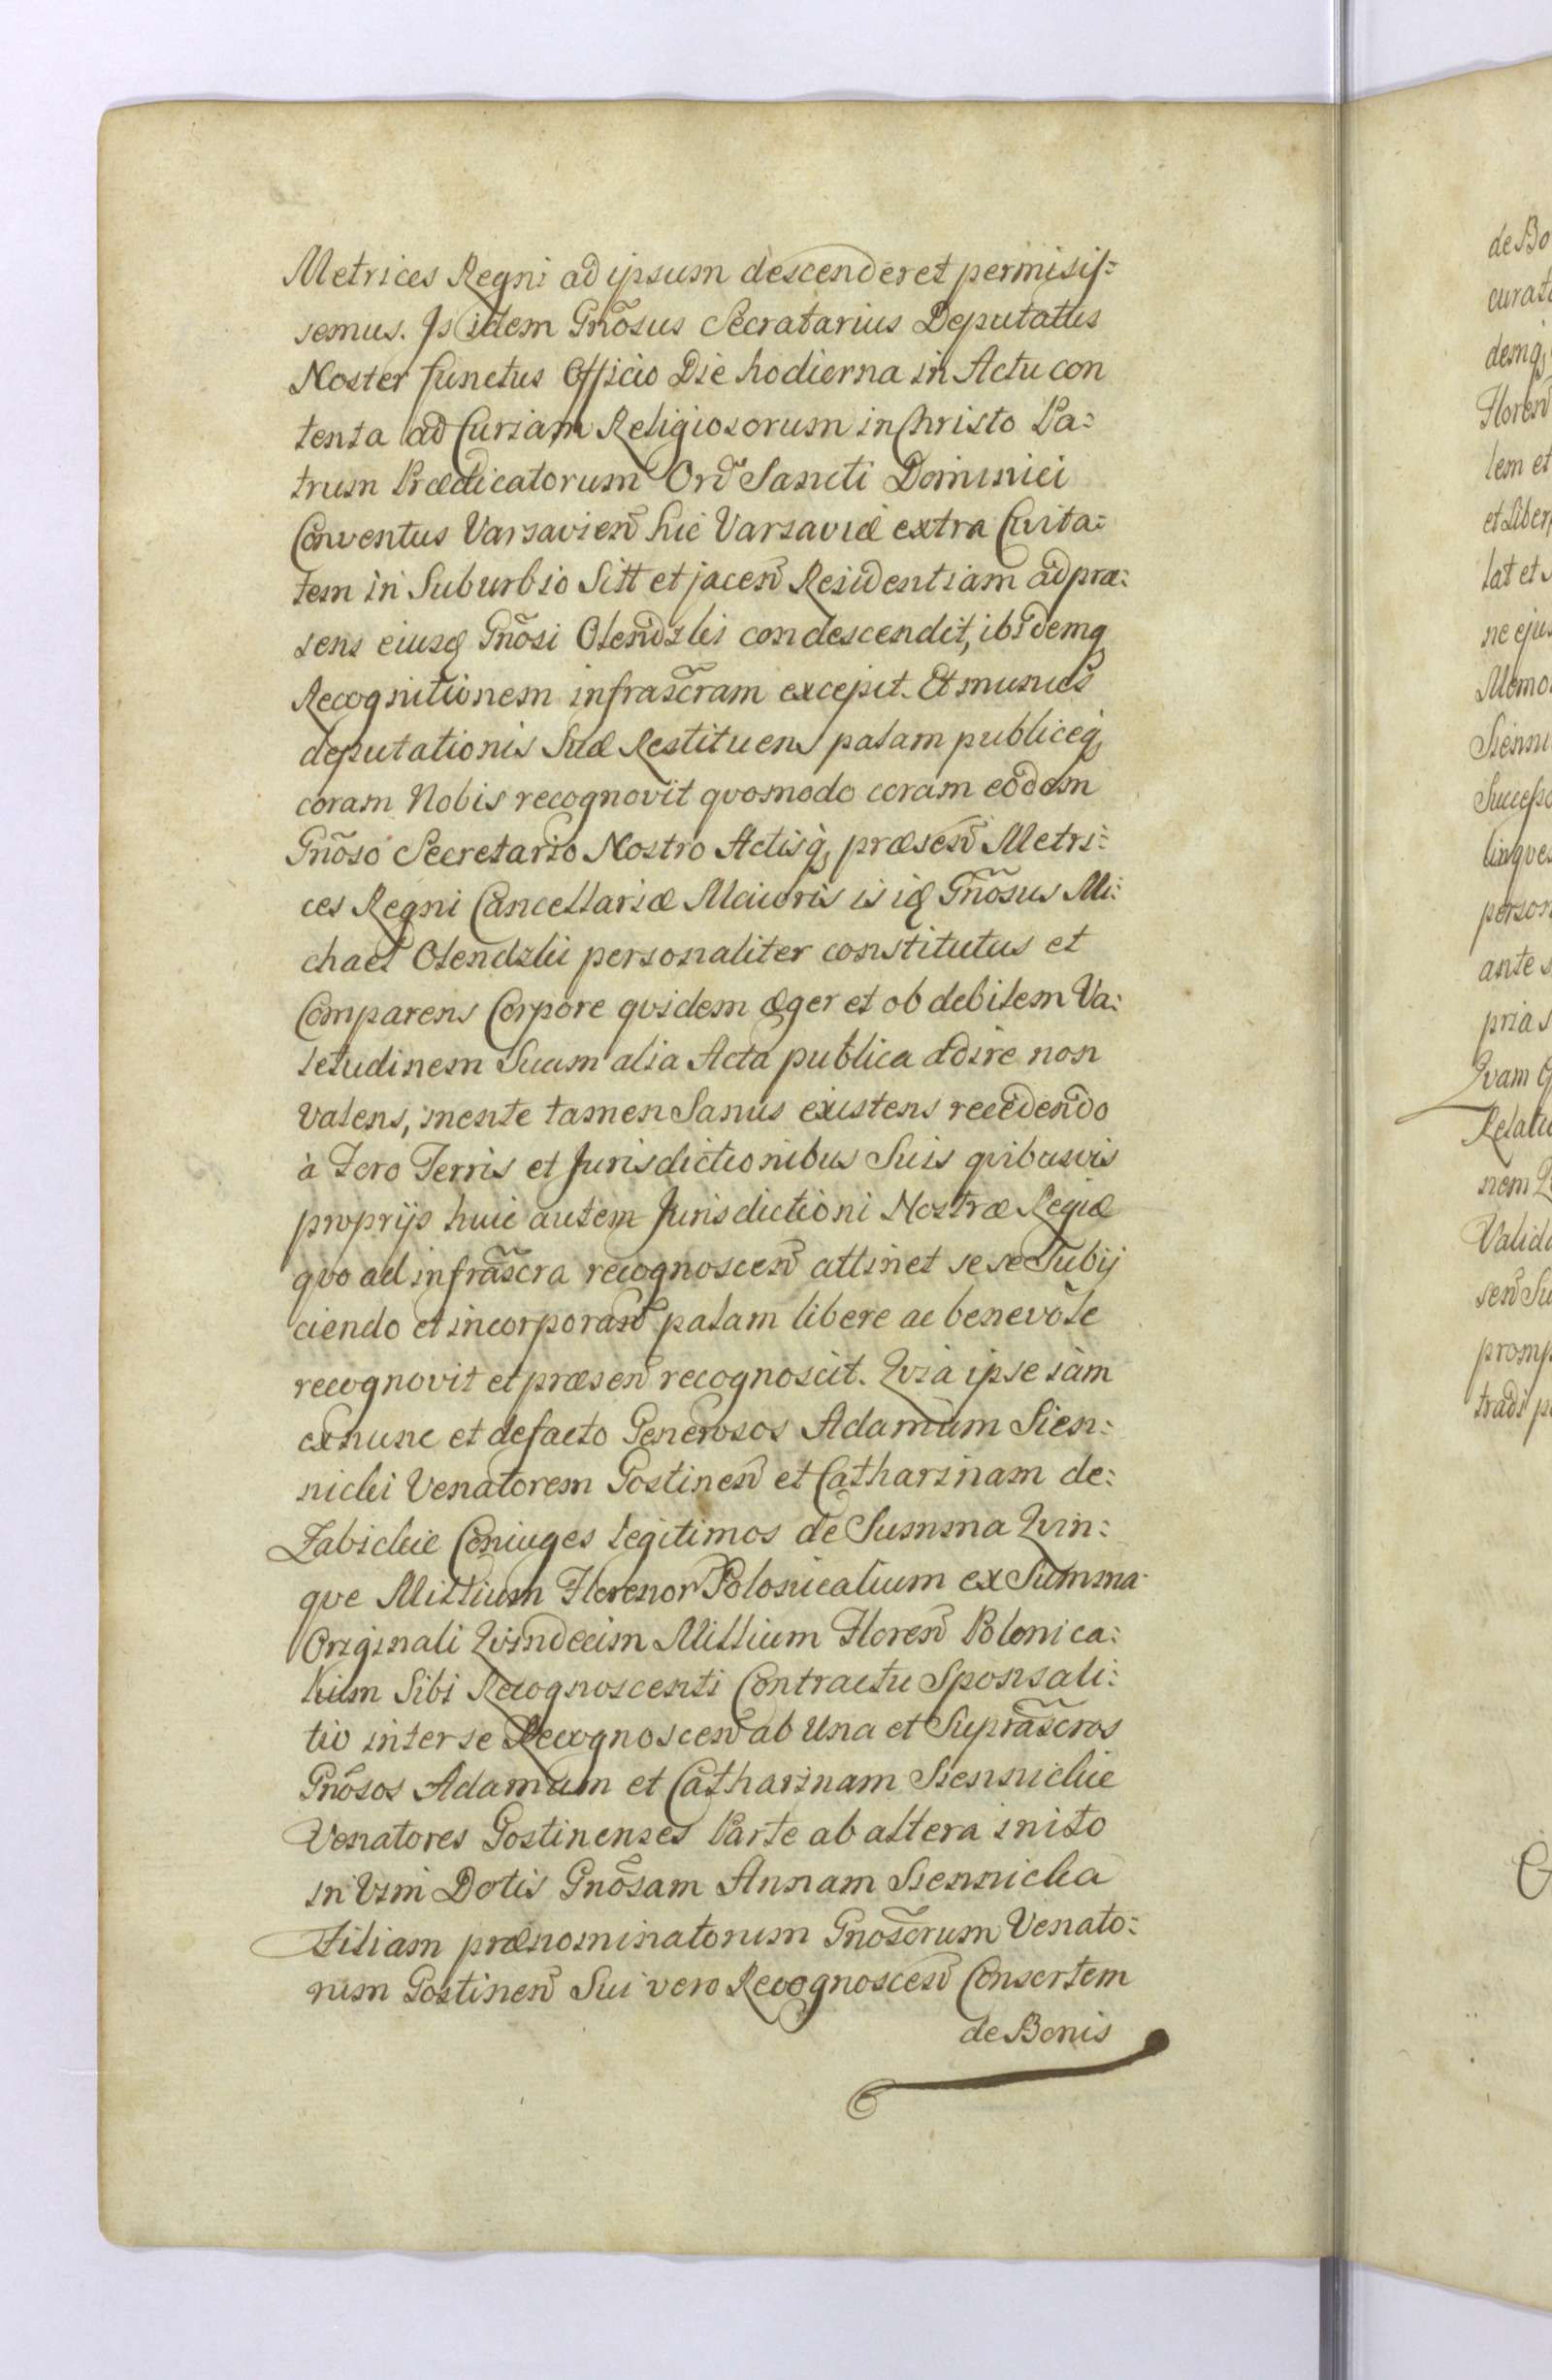 Metrices Regni ad ipsum descenderet permisis=
semus. Is idem Gnõsus Secratarius Deputatus
Noster functus Officio Die hodierna in Actu con
tenta ad Curiam Religiosorum in Christo Pa=
trum Prædicatorum Ord Sancti Dominici
Conventus Varsavien̄ hic Varsaviæ extra Civita=
tem in Suburbio Sitt et jacen̄ Residentiam ad præ=
sens eiusq Gnõsi Olendzki condescendit, ibidemq
Recognitionem infrascr̃am excepit. Et munus
deputationis Suæ Restituens palam publiceq
coram Nobis recognovit quomodo coram eodem
Gnõso Secretario Nostro Actisq, præsen̄ Metri=
ces Regni Cancellariæ Maioris is id Gnõsus Mi=
chael Olendzki personaliter constitutus et
Comparens Corpore quidem æger et ob debilem Va=
letudinem Suam alia Acta publica adire non
valens, mente tamen Sanus existens recedendo
à Foro Terris et Jurisdictionibus Suis quibusvis
proprijs huic autem Jurisdictioni Nostræ Regiæ
quo ad infrascr̃a recognoscen̄ attinet se se Subij
ciendo et incorporan̄ palam libere ac benevole
recognovit et præsen̄ recognoscit. Quia ipse iam
exnunc et defacto Generosos Adamum Sien=
nicki Venatorem Gostinen̄ et Catharinam de=
Zabickie Coniuges legitimos de Summa Quin=
que Millium Florenor̃ Polonicalium ex Summa
Originali Quindecim Millium Floren̄ Polonica=
lium Sibi Recognoscenti Contractu Sponsali=
tio inter se Recognoscen̄ ab Una et Suprascr̃os
Gnõsos Adamum et Catharinam Siennickie
Venatores Gostinenses Parte ab altera inito
in Vim Dotis Gnõsam Annam Siennicka
Filiam prænominatorum Gnõsorum Venato=
rum Gostinen̄ Sui vero Recognoscen̄ Consortem
de Bonis
de Bo
curat
demq,
Floren̄
lem et
et Liber
lat et
ne ejus
Memo
Sienni
Successo
linque
person
ante s
pria s
Quam
Relatio
nem
Valid
sen̄ Su
promp
tradi p